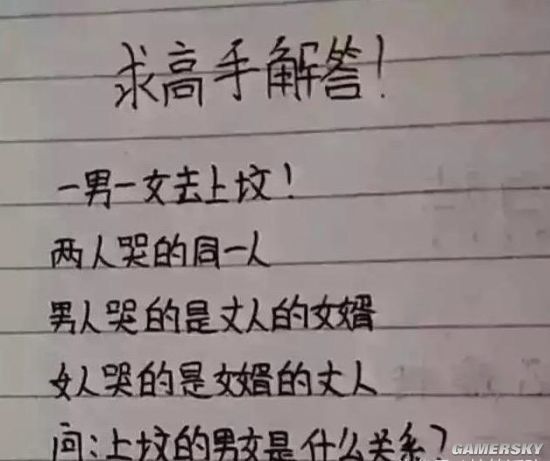 求高手解答!
一男一女去上坟!
两人哭的同一人
男人哭的是丈人的女婿
女人哭的是女婿的丈人
问:上坟的男女是什么关系?
GAMERSKY